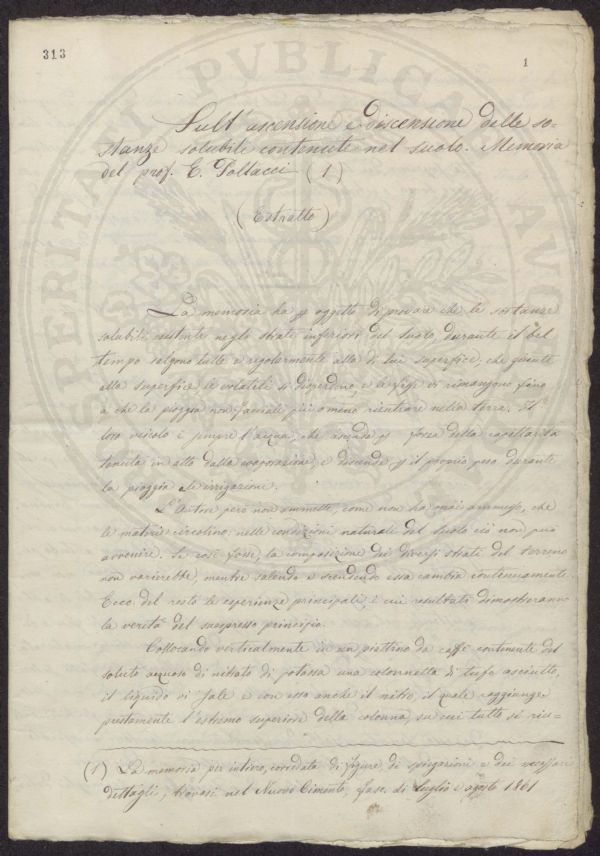 313
1
Sull'ascensione e discensione delle so-
stanze solubili contenute nel suolo. Memoria
del prof. E. Pollacci (1)
(Estratto)
La memoria ha p oggetto di provare che le sostanze
solubili esistenti negli strati inferiori del suolo, durante il bel
tempo salgono tutte e regolarmente alla di lui superfice, che giunte
alla superfice le volatili si disperdono, e le fisse vi rimangono fino
a che la pioggia non facciale più o meno rientrare nella terra. Il
loro veicolo è sempre l'acqua, che ascende p forza della capillarità
tenuta in atto dalla evaporazione, e discende p il proprio peso durante
la pioggia e le irrigazioni.
L'Autore però non ammette, come non ha mai ammesso, che
le materie circolino: nelle condizioni naturali del suolo ciò non può
avvenire. Se così fosse, la composizione dei diversi strati del terreno
non varierebbe, mentre salendo e scendendo essa cambia continuamente.
Ecco del resto le esperienze principali, i cui resultati dimostreranno
la verità del suespresso principio.
Collocando verticalmente in un piattino da caffè contenente del
soluto acquoso di nitrato di potassa una colonnetta di tufo asciutto,
il liquido vi sale e con esso anche il nitro, il quale raggiunge
prestamente l'estremo superiore della colonna, su cui tutto si ris-
(1) La memoria per intiero, corredata di figure, di spiegazioni e dei necessari
dettagli, trovasi nel Nuovo Cimento, fasc. di luglio e agosto 1861
SPERITATI PVBLICAE AVG